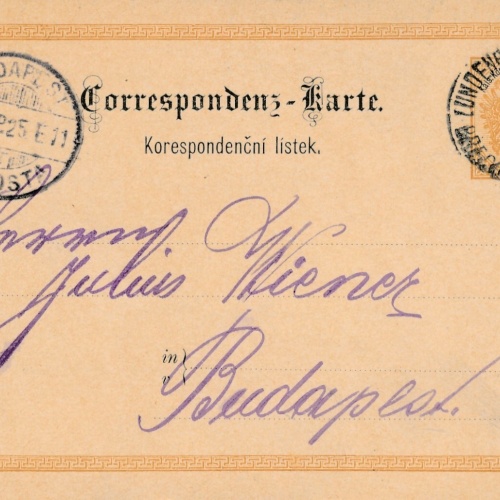 DAPEST
25 E 11
POSTA
Correspondenz-Karte.
Korespondenční lístek.
LUNDENB
BŘECL
Herrn
Julius Wiener
in
v
Budapest.